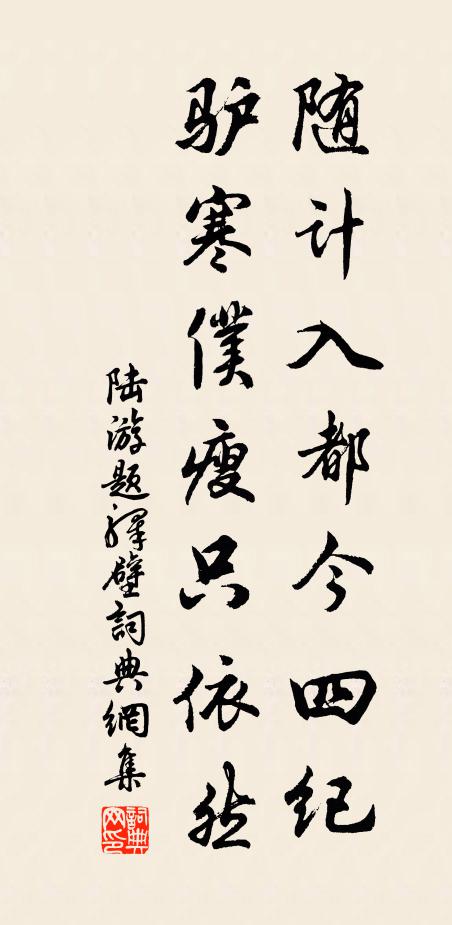 随计入都今四纪
驴寒僕瘦只依然
陆游题驿壁詞典網集
詞典
网印